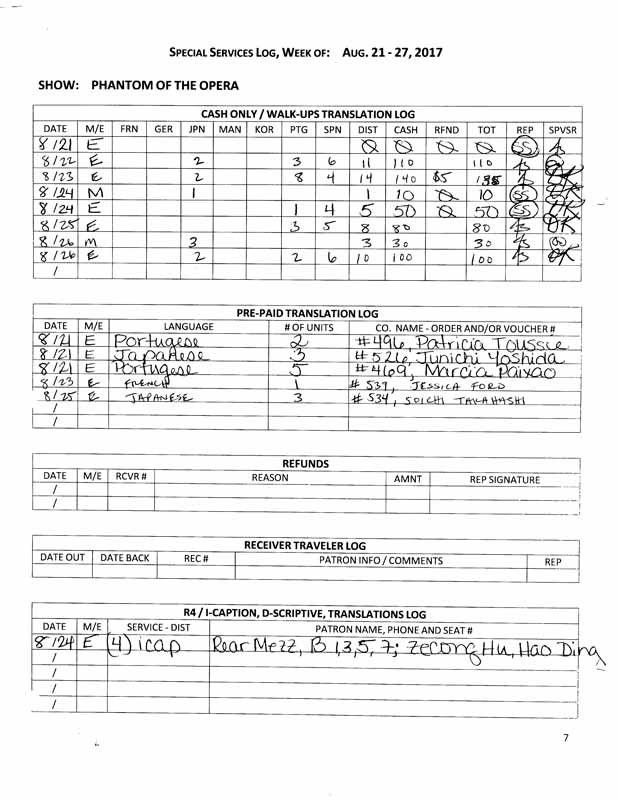 SPECIAL SERVICES LOG, WEEK OF: AUG. 21 - 27, 2017
SHOW: PHANTOM OF THE OPERA
CASH ONLY / WALK-UPS TRANSLATION LOG
DATE M/E FRN GER JPN MAN KOR PTG SPN DIST CASH RFND TOT REP SPVSR
8/21 E 0 0 0 0 SS
8/22 E 2 3 6 11 110 110
8/23 E 2 8 4 14 140 $5 135
8/24 M 1 1 10 0 10 SS
8/24 E 1 4 5 50 0 50 SS
8/25 E 3 5 8 80 80
8/26 M 3 3 30 30
8/26 E 2 2 6 10 100 100
/
PRE-PAID TRANSLATION LOG
DATE M/E LANGUAGE # OF UNITS CO. NAME - ORDER AND/OR VOUCHER #
8/21 E Portugese 2 #496, Patricia Toussie
8/21 E Japanese 3 #526, Junichi Yoshida
8/21 E Portugese 5 #469, Marcia Paixao
8/23 E FRENCH 1 # 537, JESSICA FORD
8/25 E JAPANESE 3 # 534, SOICHI TAKAHASHI
/
/
REFUNDS
DATE M/E RCVR # REASON AMNT REP SIGNATURE
/
/
RECEIVER TRAVELER LOG
DATE OUT DATE BACK REC # PATRON INFO / COMMENTS REP
R4 / I-CAPTION, D-SCRIPTIVE, TRANSLATIONS LOG
DATE M/E SERVICE - DIST PATRON NAME, PHONE AND SEAT #
8/24 E (4) icap Rear Mezz, B 1,3,5,7; Zecong Hu, Hao Ding
/
/
/
/
7